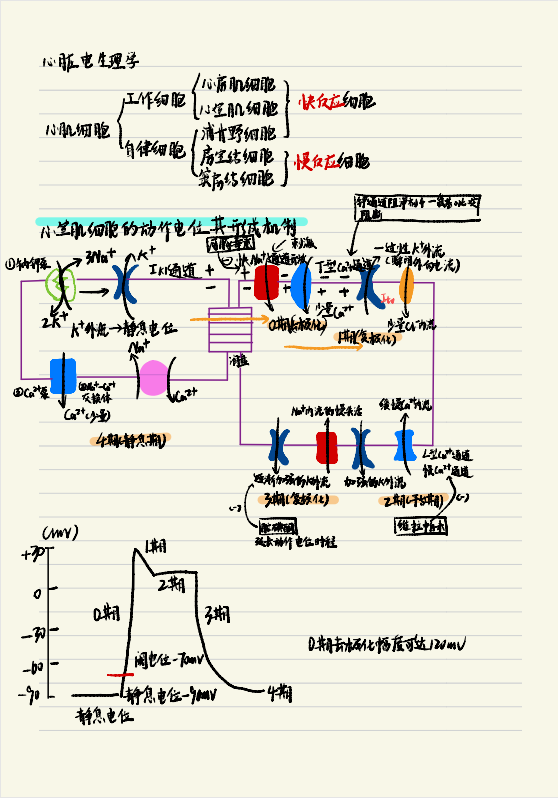 心脏电生理学
心肌细胞
工作细胞
心房肌细胞
心室肌细胞
快反应细胞
自律细胞
浦肯野细胞
房室结细胞
窦房结细胞
慢反应细胞
心室肌细胞的动作电位及形成机制
钾通道阻滞剂
①钠钾泵
3Na+
K+
2K+
IK1通道
K+外流→静息电位
快Na+通道
刺激
T型Ca2+通道
少量Ca2+
一过性K+外流
Ito
0期(去极化)
1期(复极化)
闰盘
②Ca2+泵
③Na+-Ca2+
交换体
Na+
Ca2+
Ca2+(少量)
4期(静息期)
缓慢Ca2+内流
加强的K+外流
L型Ca2+通道
慢Ca2+通道
3期(复极化)
2期(平台期)
(-)
(-)
胺碘酮
延长动作电位时程
维拉帕米
(mV)
+30
0
-30
-60
-90
1期
2期
0期
3期
4期
阈电位-70mV
静息电位-90mV
静息电位
0期去极化幅度可达120mV